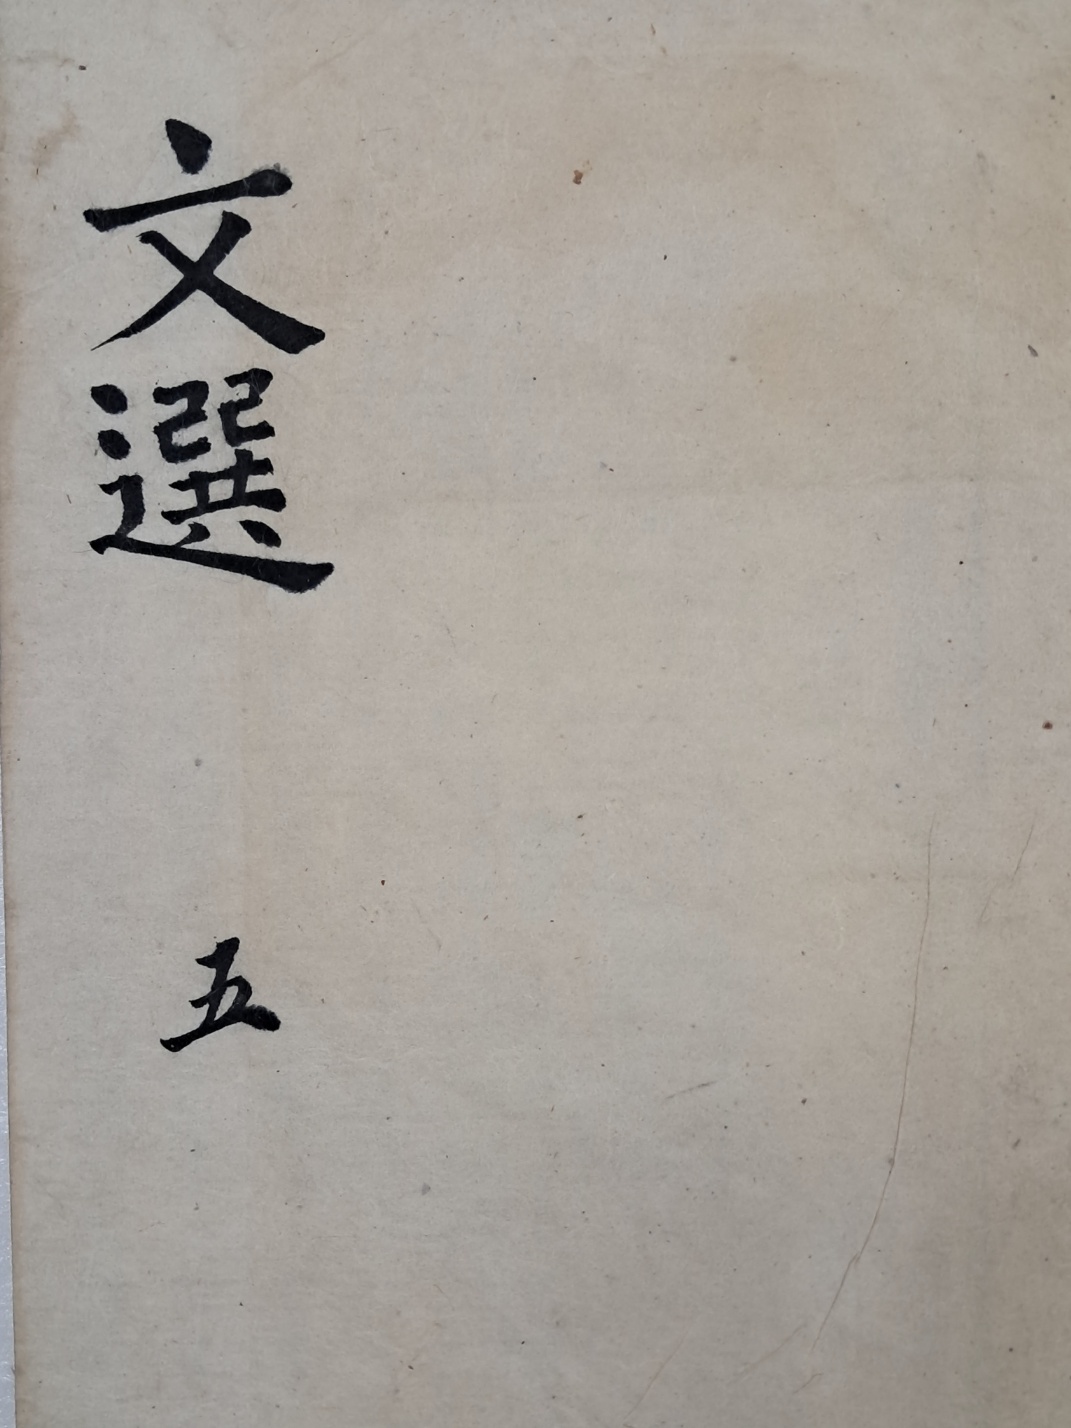 文選 五